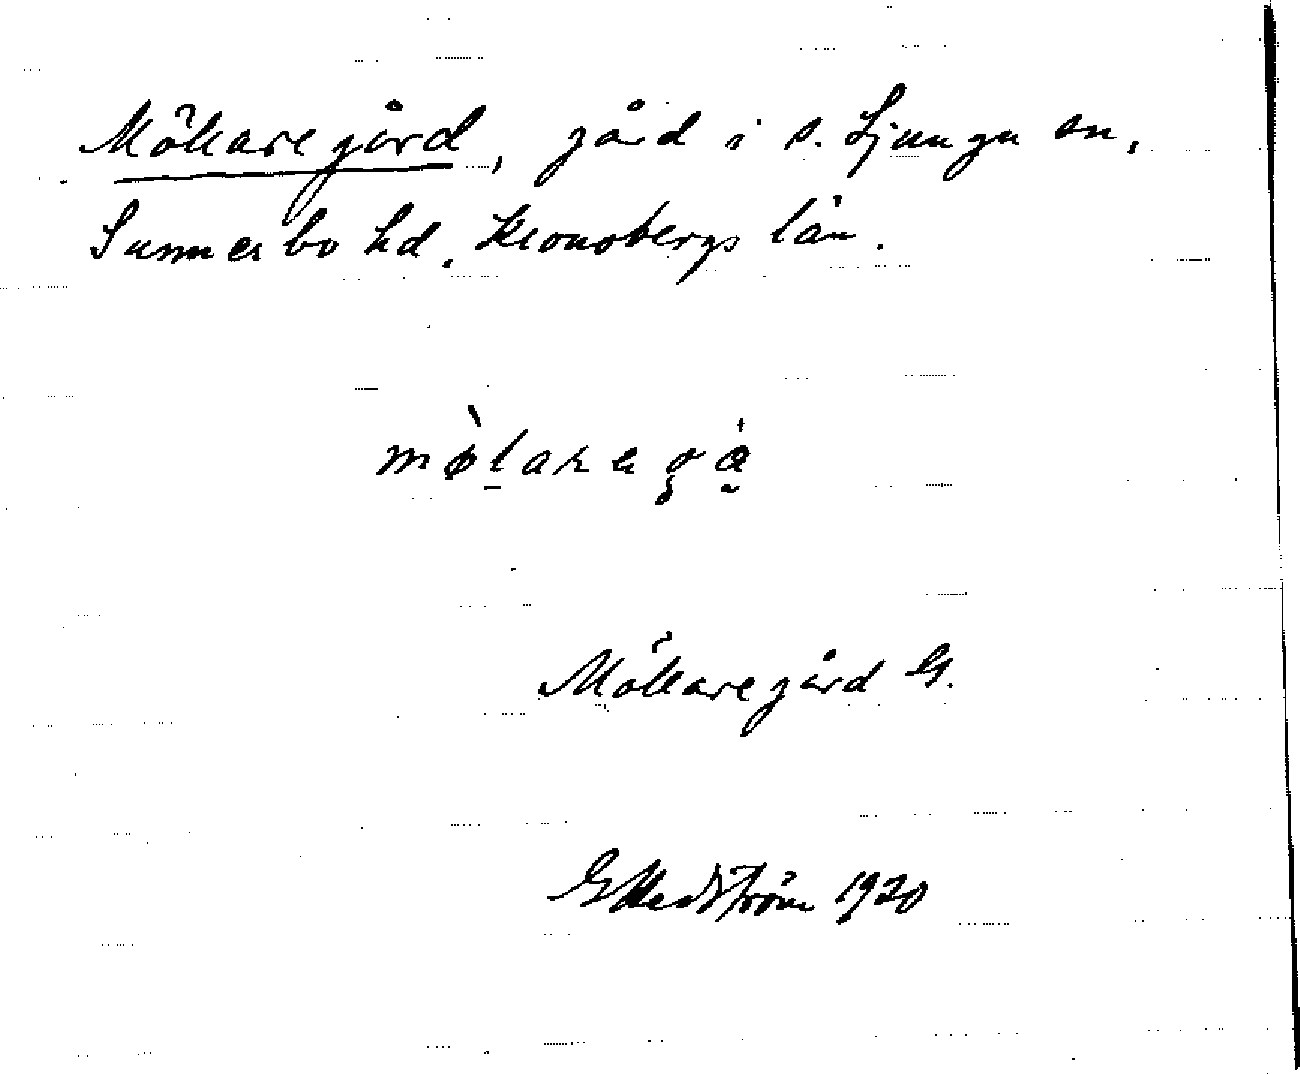 Möllaregård, gård i s. Ljunga sn,
Sunnerbo hd. Kronobergs län.
mø̀laregå
Möllaregård G.
G Hedström 1920